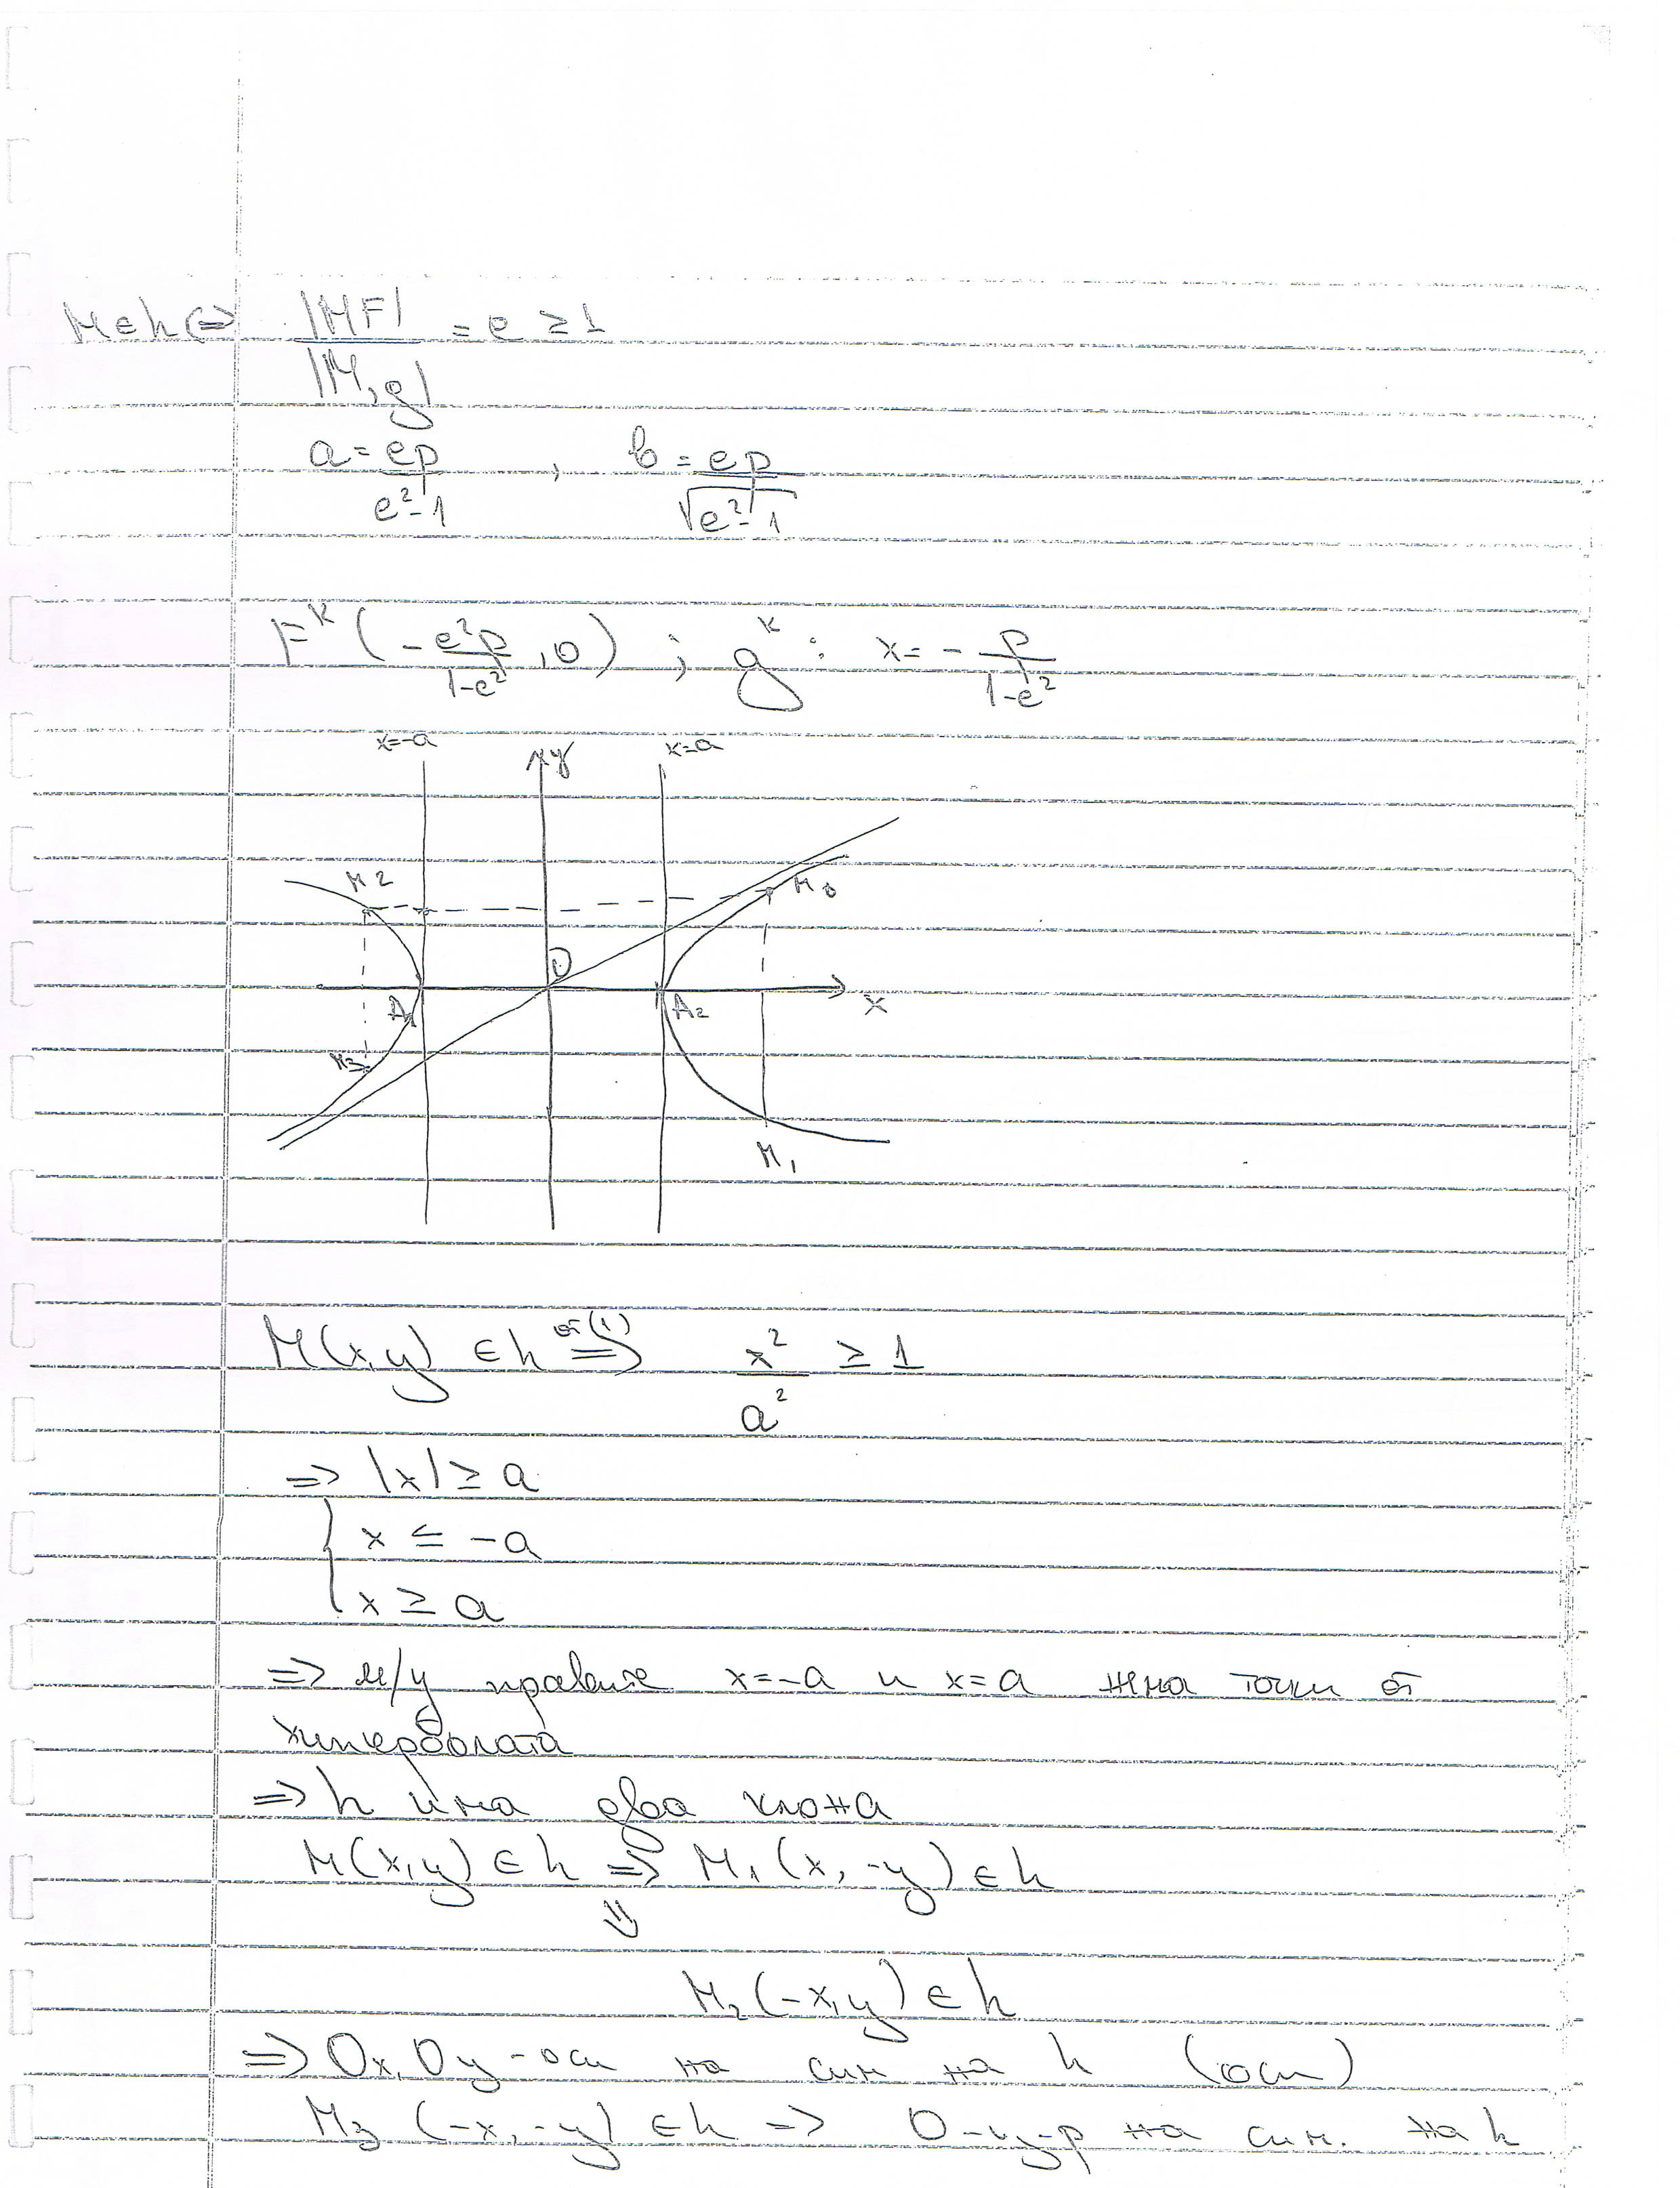 M∈h ⇔ |MF| / |M,g| = e ≥ 1
a = ep / e²-1 , b = ep / √e²-1
F^K (- e²p / 1-e² , 0) ; g^K : x = - p / 1-e²
x=-a y x=a
M2 M0
O
A1 A2 x
M3
M1
M(x,y) ∈ h ⇒ от(1) x² / a² ≥ 1
⇒ |x| ≥ a
{ x ≤ -a
x ≥ a
⇒ м/у правите x=-a и x=a няма точки от
хиперболата
⇒ h има два клона
M(x,y) ∈ h ⇒ M1(x,-y) ∈ h
⇓
M2(-x,y) ∈ h
⇒ Ox, Oy - оси на сим на h (оси)
M3 (-x,-y) ∈ h ⇒ O - ц-р на сим. на h